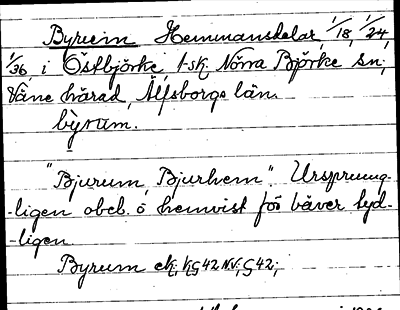 Byrum Hemmansdelar 1/18, 1/24,
1/36, i Östbjörke, t-sk, Norra Björke sn,
Väne härad, Älfsborgs län.
by̆rum.
"Bjurum, Bjurhem". Ursprung-
-ligen obeb. ö hemvist för bäver tyd-
-ligen
Byrum ek; kG42NV; G42;